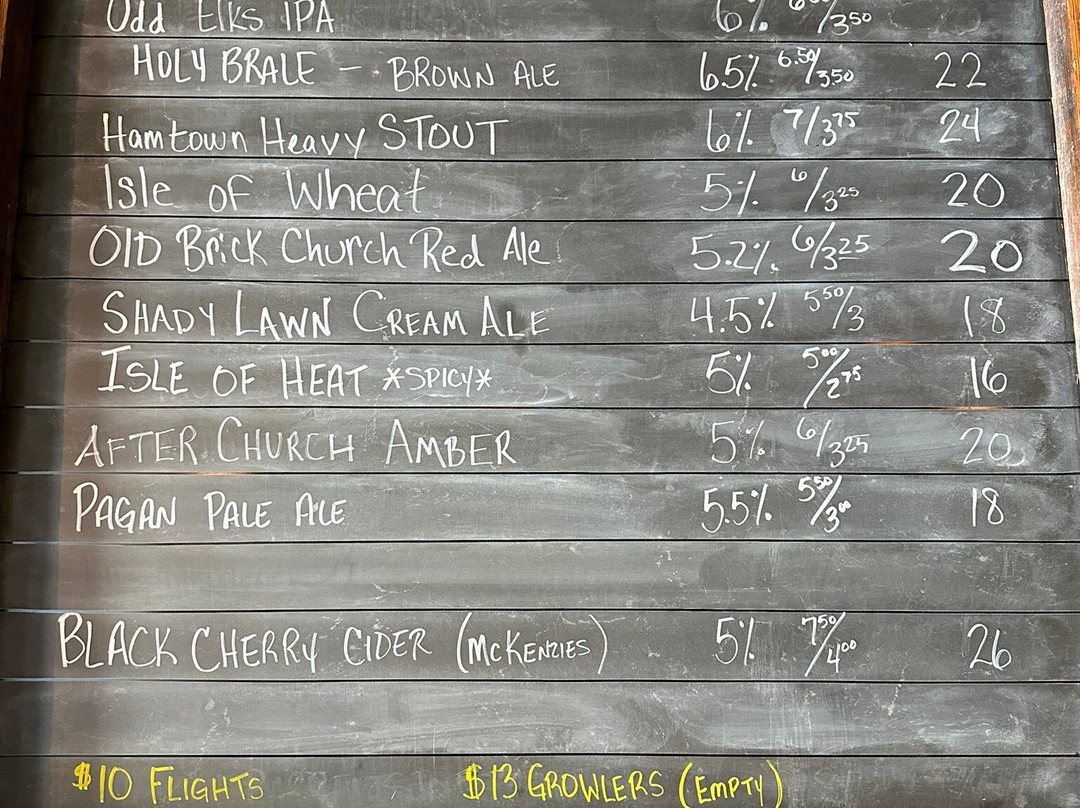 Odd Elks IPA 6% /3 50
HOLY BRALE - BROWN ALE 6.5% 6.50/3.50 22
Hamtown Heavy STOUT 6% 7/3 75 24
Isle of Wheat 5% 6/3 25 20
Old Brick Church Red Ale 5.2% 6/3 25 20
SHADY LAWN CREAM ALE 4.5% 5 50/3 18
ISLE OF HEAT *SPICY* 5% 5 00/2 75 16
AFTER CHURCH AMBER 5% 6/3 25 20
PAGAN PALE ALE 5.5% 5 50/3 00 18
BLACK CHERRY CIDER (MCKENZIES) 5% 7 50/4 00 26
$10 FLIGHTS $13 GROWLERS (EMPTY)